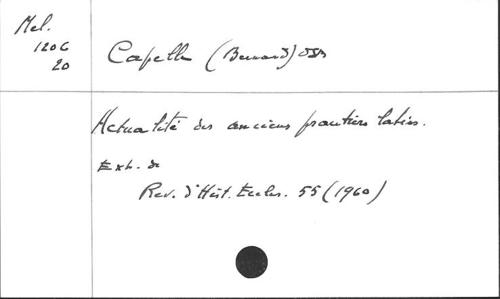 Mel.
1206
20
Capelle (Bernard) OSB
Actualité des anciens psautiers latins.
Ext. de
Rev. d'Hist. Eccles. 55 (1960)